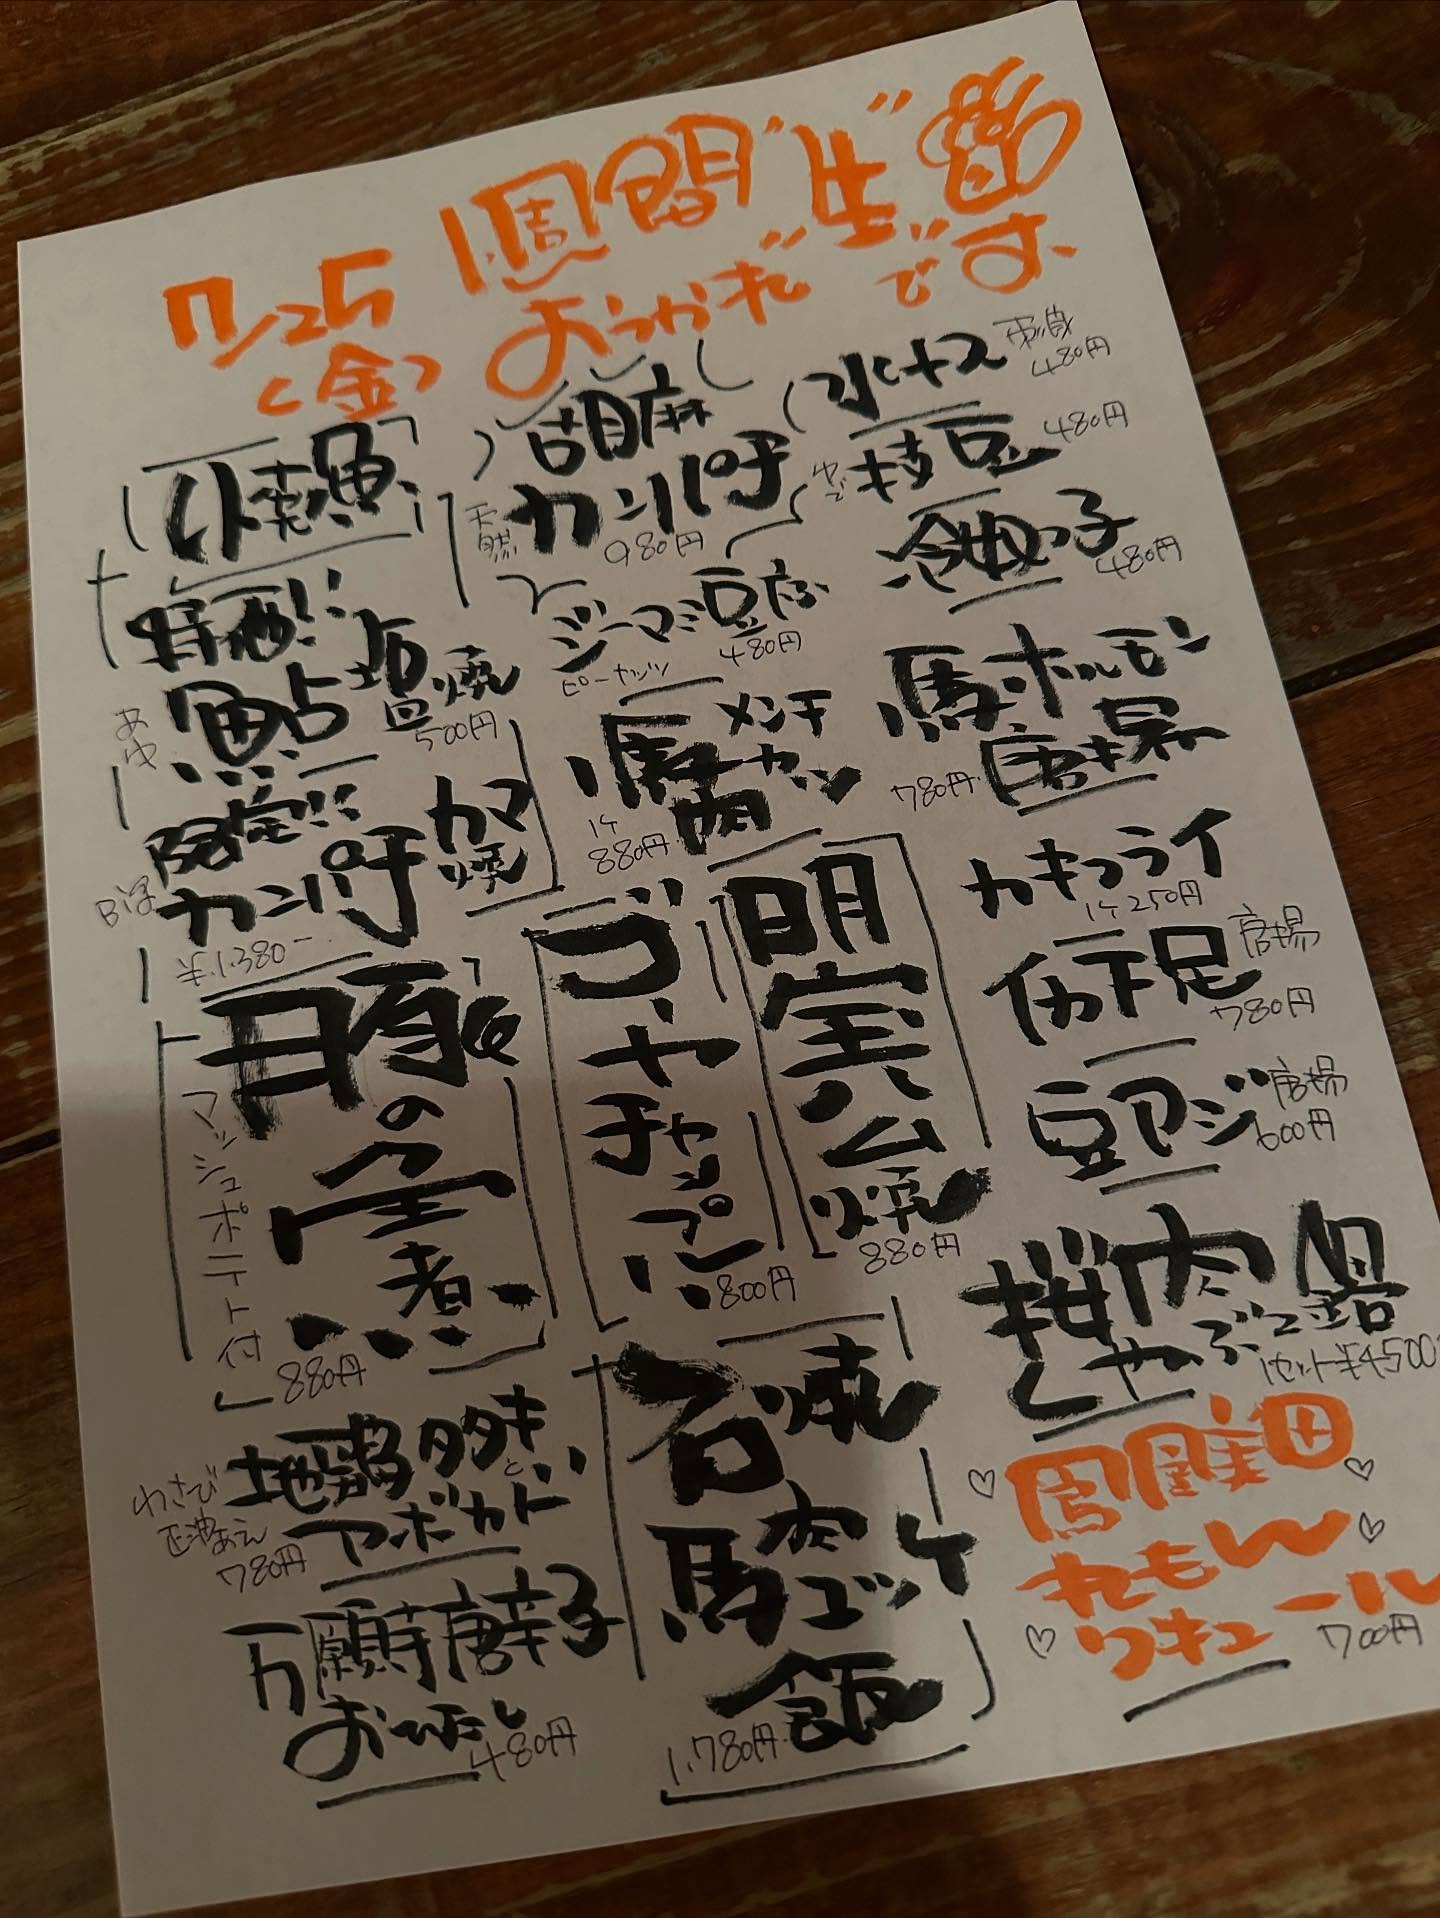 7/25
(金)
1週間"生"
おつかれ です、
水ナス 刺身
480円
ゆで 枝豆 480円
冷奴っ子
480円
胡麻
カンパチ
天然
980円
ジーマミ豆腐
ピーナッツ
480円
焼魚
特西!!
あゆ
鮎 塩焼
500円
限定!!
カンパチ カマ焼
¥1.380-
馬肉 メンチカツ
1ケ
880円
馬ホルモン
唐揚
780円
カキフライ
1ケ250円
イカ下足 唐揚
780円
豆アジ 唐揚
600円
明宝ハム焼
880円
ゴーヤチャンプル
800円
豚の
煮
マッシュポテト付
880円
地鶏タタキと
アボカド
わさび
正油あえ
780円
万願寺唐辛子
おひたし
480円
石焼
馬肉ユッケ
飯
1.780円
桜肉
しゃぶしゃぶ
1セット¥4500
れもん
ワキュール
700円